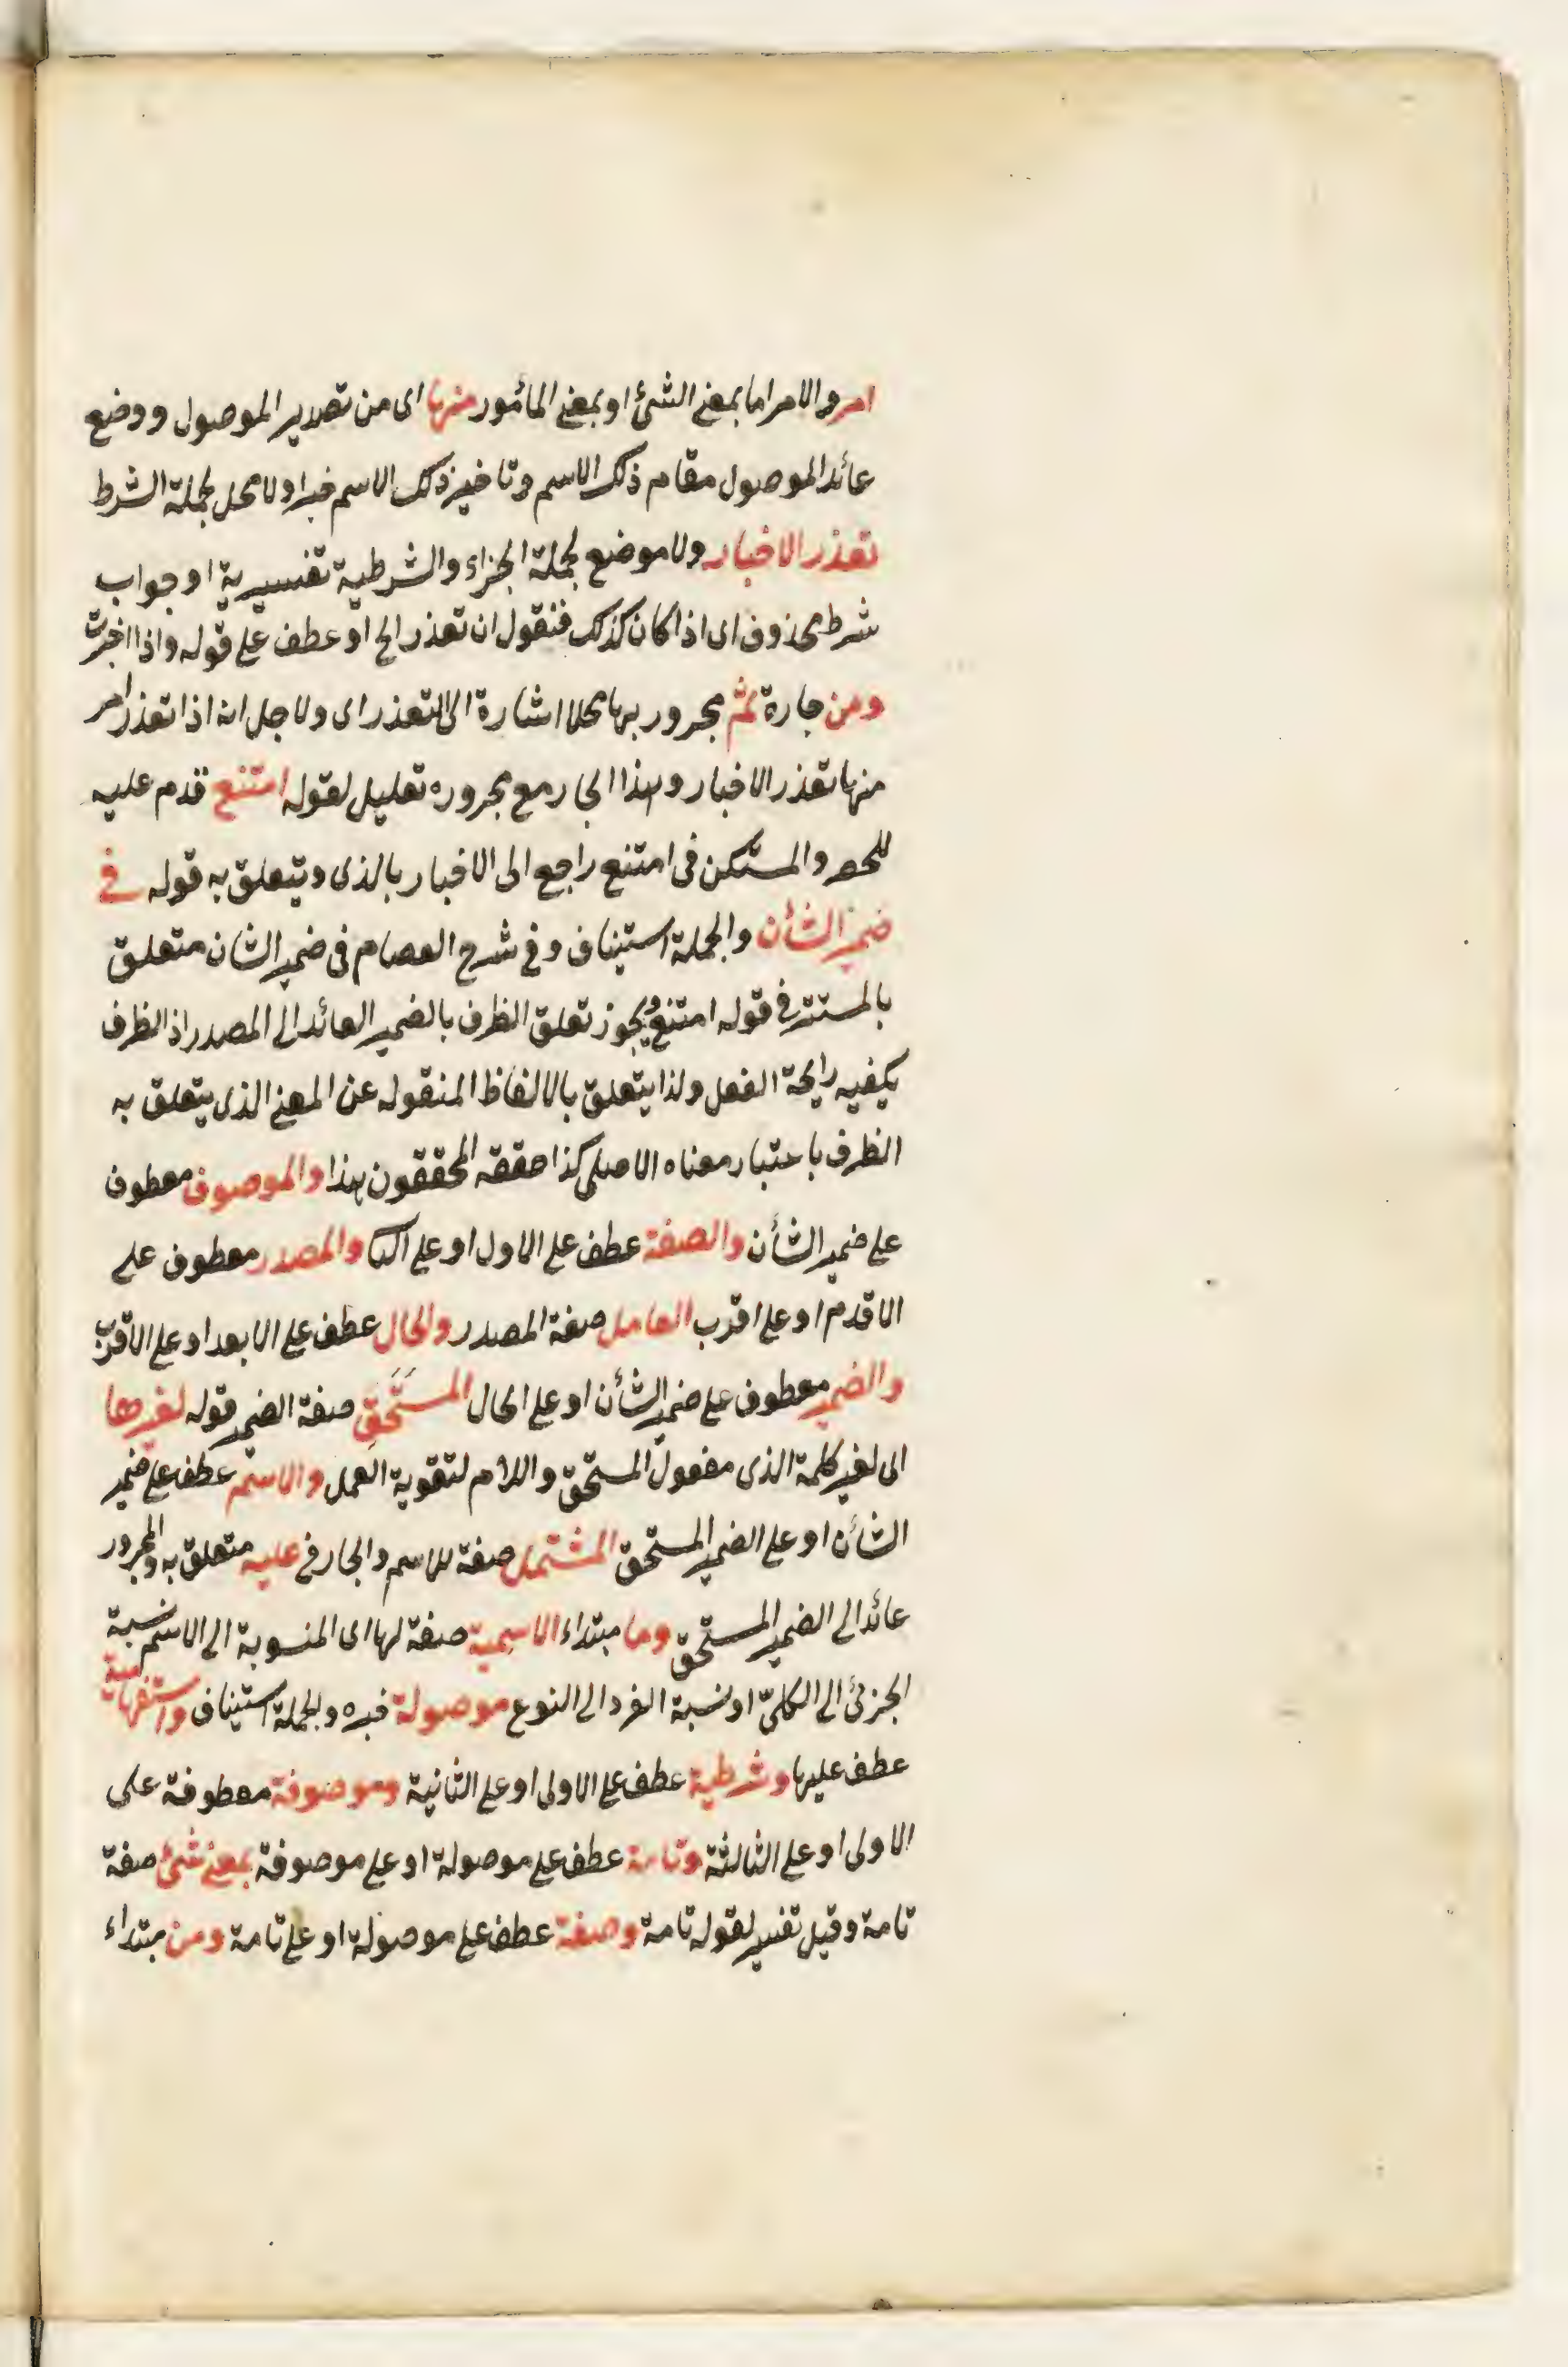 امر والامر اما بمعنى الشئ او بمعنى المأمور منها اى من تصدير الموصول ووضع
عائد الموصول مقام ذلك الاسم وتاخير ذلك الاسم خبرا ولا محل لجملة الشرط
تعذر الاخبار ولا موضع لجملة الجزاء والشرطية تفسيرية او جواب
شرط محذوف اى اذا كان كذلك فنقول ان تعذر الخ او عطف على قوله واذا اخبرت
ومن جارة ثم مجرور بها محلا اشارة الى التعذر اى ولاجل انه اذا تعذر امر
منها تعذر الاخبار وهذا الجار مع مجروره تعليل لقوله امتنع قدم عليه
للحصر والمستكن فى امتنع راجع الى الاخبار بالذى ويتعلق به قوله فى
ضمير الشأن والجملة استيناف وفى شرح العصام فى ضمير الشان متعلق
بالمستتر فى قوله امتنع ويجوز تعلق الظرف بالضمير العائد الى المصدر اذ الظرف
يكفيه رايحة الفعل ولذا يتعلق بالالفاظ المنقوله عن المعنى الذى يتعلق به
الظرف باعتبار معناه الاصلى كذا حققه المحققون هذا والموصوف معطوف
على ضمير الشأن والصفة عطف على الاول او على والمصدر معطوف على
الاقدم او على اقرب العامل صفة المصدر والحال عطف على الابعد او على الاقرب
والضمير معطوف على ضمير الشأن او على الحال المستحق صفة الضمير قوله لغيرها
اى لغير كلمة الذى مفعول المستحق واللام لتقوية العمل والاسم عطف على ضمير
الشأن او على الضمير المستحق المشتمل صفة للاسم والجار فى عليه متعلق به والمجرور
عائد الى الضمير المستحق وما مبتداء الاسمية صفة لها اى المنسوبة الى الاسم نسبة
الجزئ الى الكلىّ او نسبة الفرد الى النوع موصولة خبره والجملة استيناف واستفهامية
عطف عليها وشرطية عطف على الاولى او على الثانية وموصوفة معطوفة على
الاولى او على الثالثة وتامة عطف على موصولة او على موصوفة بمعنى شئ صفة
تامة وقيل تفسير لقوله تامة وصفة عطف على موصولة او على تامة ومن مبتداء